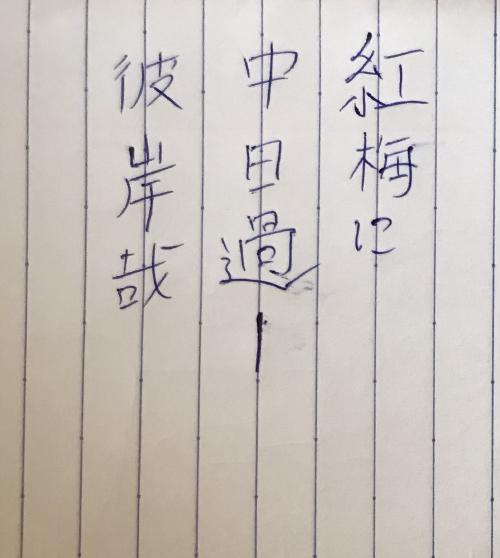 紅梅に
中旦過ー
彼岸哉